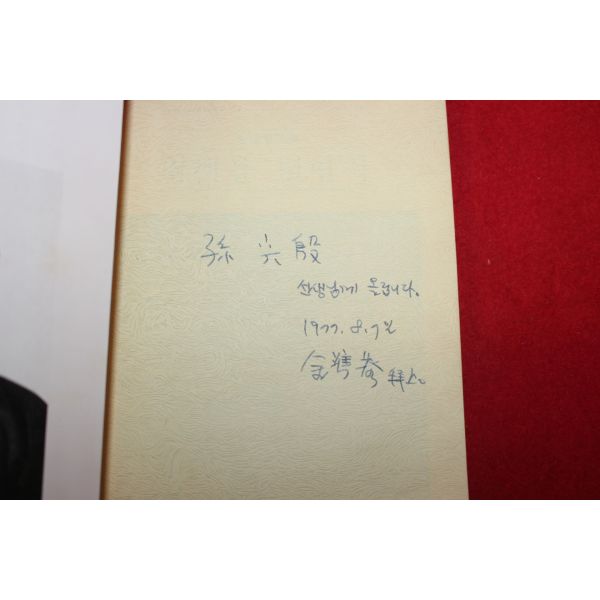 孫 光殷
선생님께 올립니다.
1977. 8. 7일
金準泰 拜上